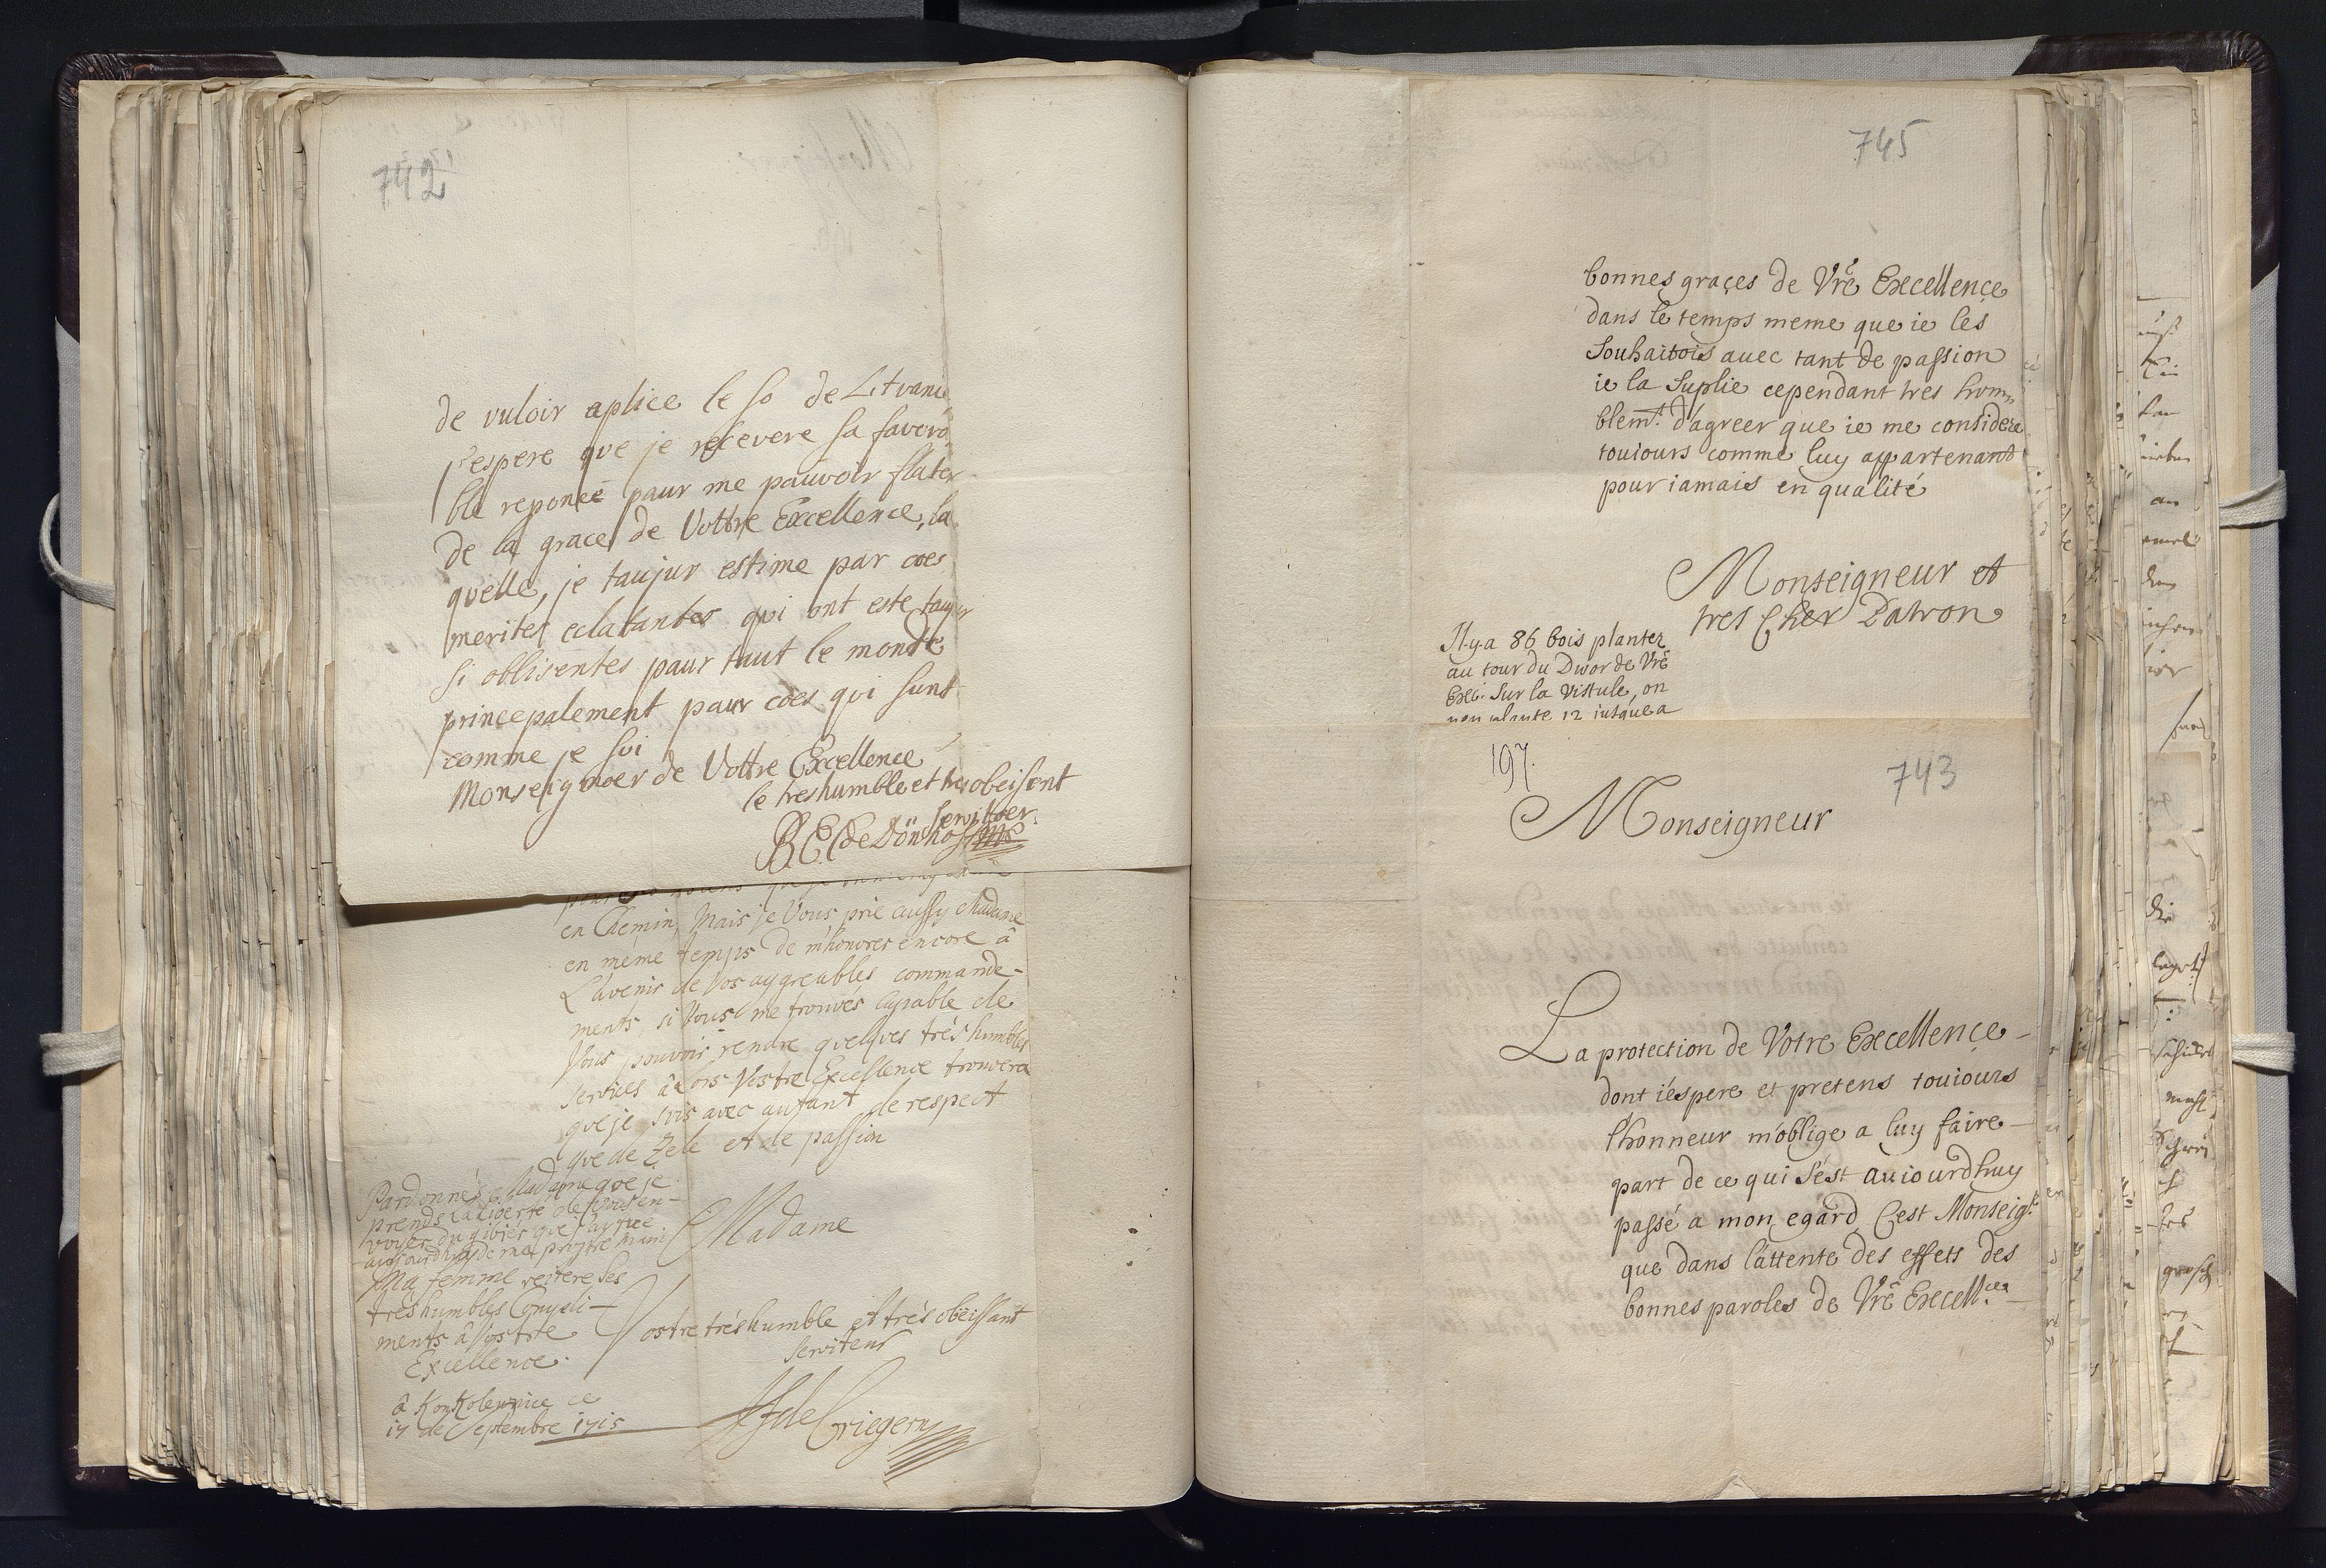 742
de vuloir aplice le so de Litvanie
j'espere que je recevere sa favora
ble reponce paur me pauvoir flater
de la grace de Vottre Excellence, la
quelle, je taujur estime par coes
merites eclatantes qui ont este taujur
si oblisentes paur taut le monde
principalement paur coes qui sunt
comme je sui
Monseignoer de Vottre Excellence
le treshumble et tresobeisent
servitoer
B E C de Dönhoff
en Chemin, Mais je Vous prie aussy Madame
en méme temps de m'honorer encore â
L'avenir de Vos aygreables commande-
ments, si Vous me trouvés capable de
Vous pouvoir rendre quelques trés humbles
services âlors Vostre Excellence trouvera
que je suis avec autant de respect
que de Zele et de passion
Madame
Pardonnés Madame que je
prends La liberté de Vous en-
voyer du gibier que j'ay tuée
aujourdhuy de ma propre main
Ma femme reitere ses
trés humbles Compli-
ments â Vostre
Excellence.
Vostre trés humble et trés obëissant
serviteur
â Konkolewnice ce
17 de Septembre 1715
de Criegern
745
bonnes graçes de Vrẽ Excellençe
dans le temps meme que ie les
Souhaitois auec tant de passion
ie la Suplie cependant tres hum
blemt. d'agreer que ie me considera
toujours comme luy appartenant
pour iamais en qualité
Monseigneur et
tres Cher Patron
Il y a 86 bois plantez
au tour du Dwor de Vrẽ
Exc. Sur la Vistule, on
nen plante 12 jusque a
197.
743
Monseigneur
La protection de Votre Excellençe
dont iéspere et pretens toujours
l'honneur m'oblige a luy faire
part de ce qui s'ést aujourdhuy
passé a mon egard C'est Monseigr.
que dans láttente des effets des
bonnes paroles de Vrẽ Excell.ce